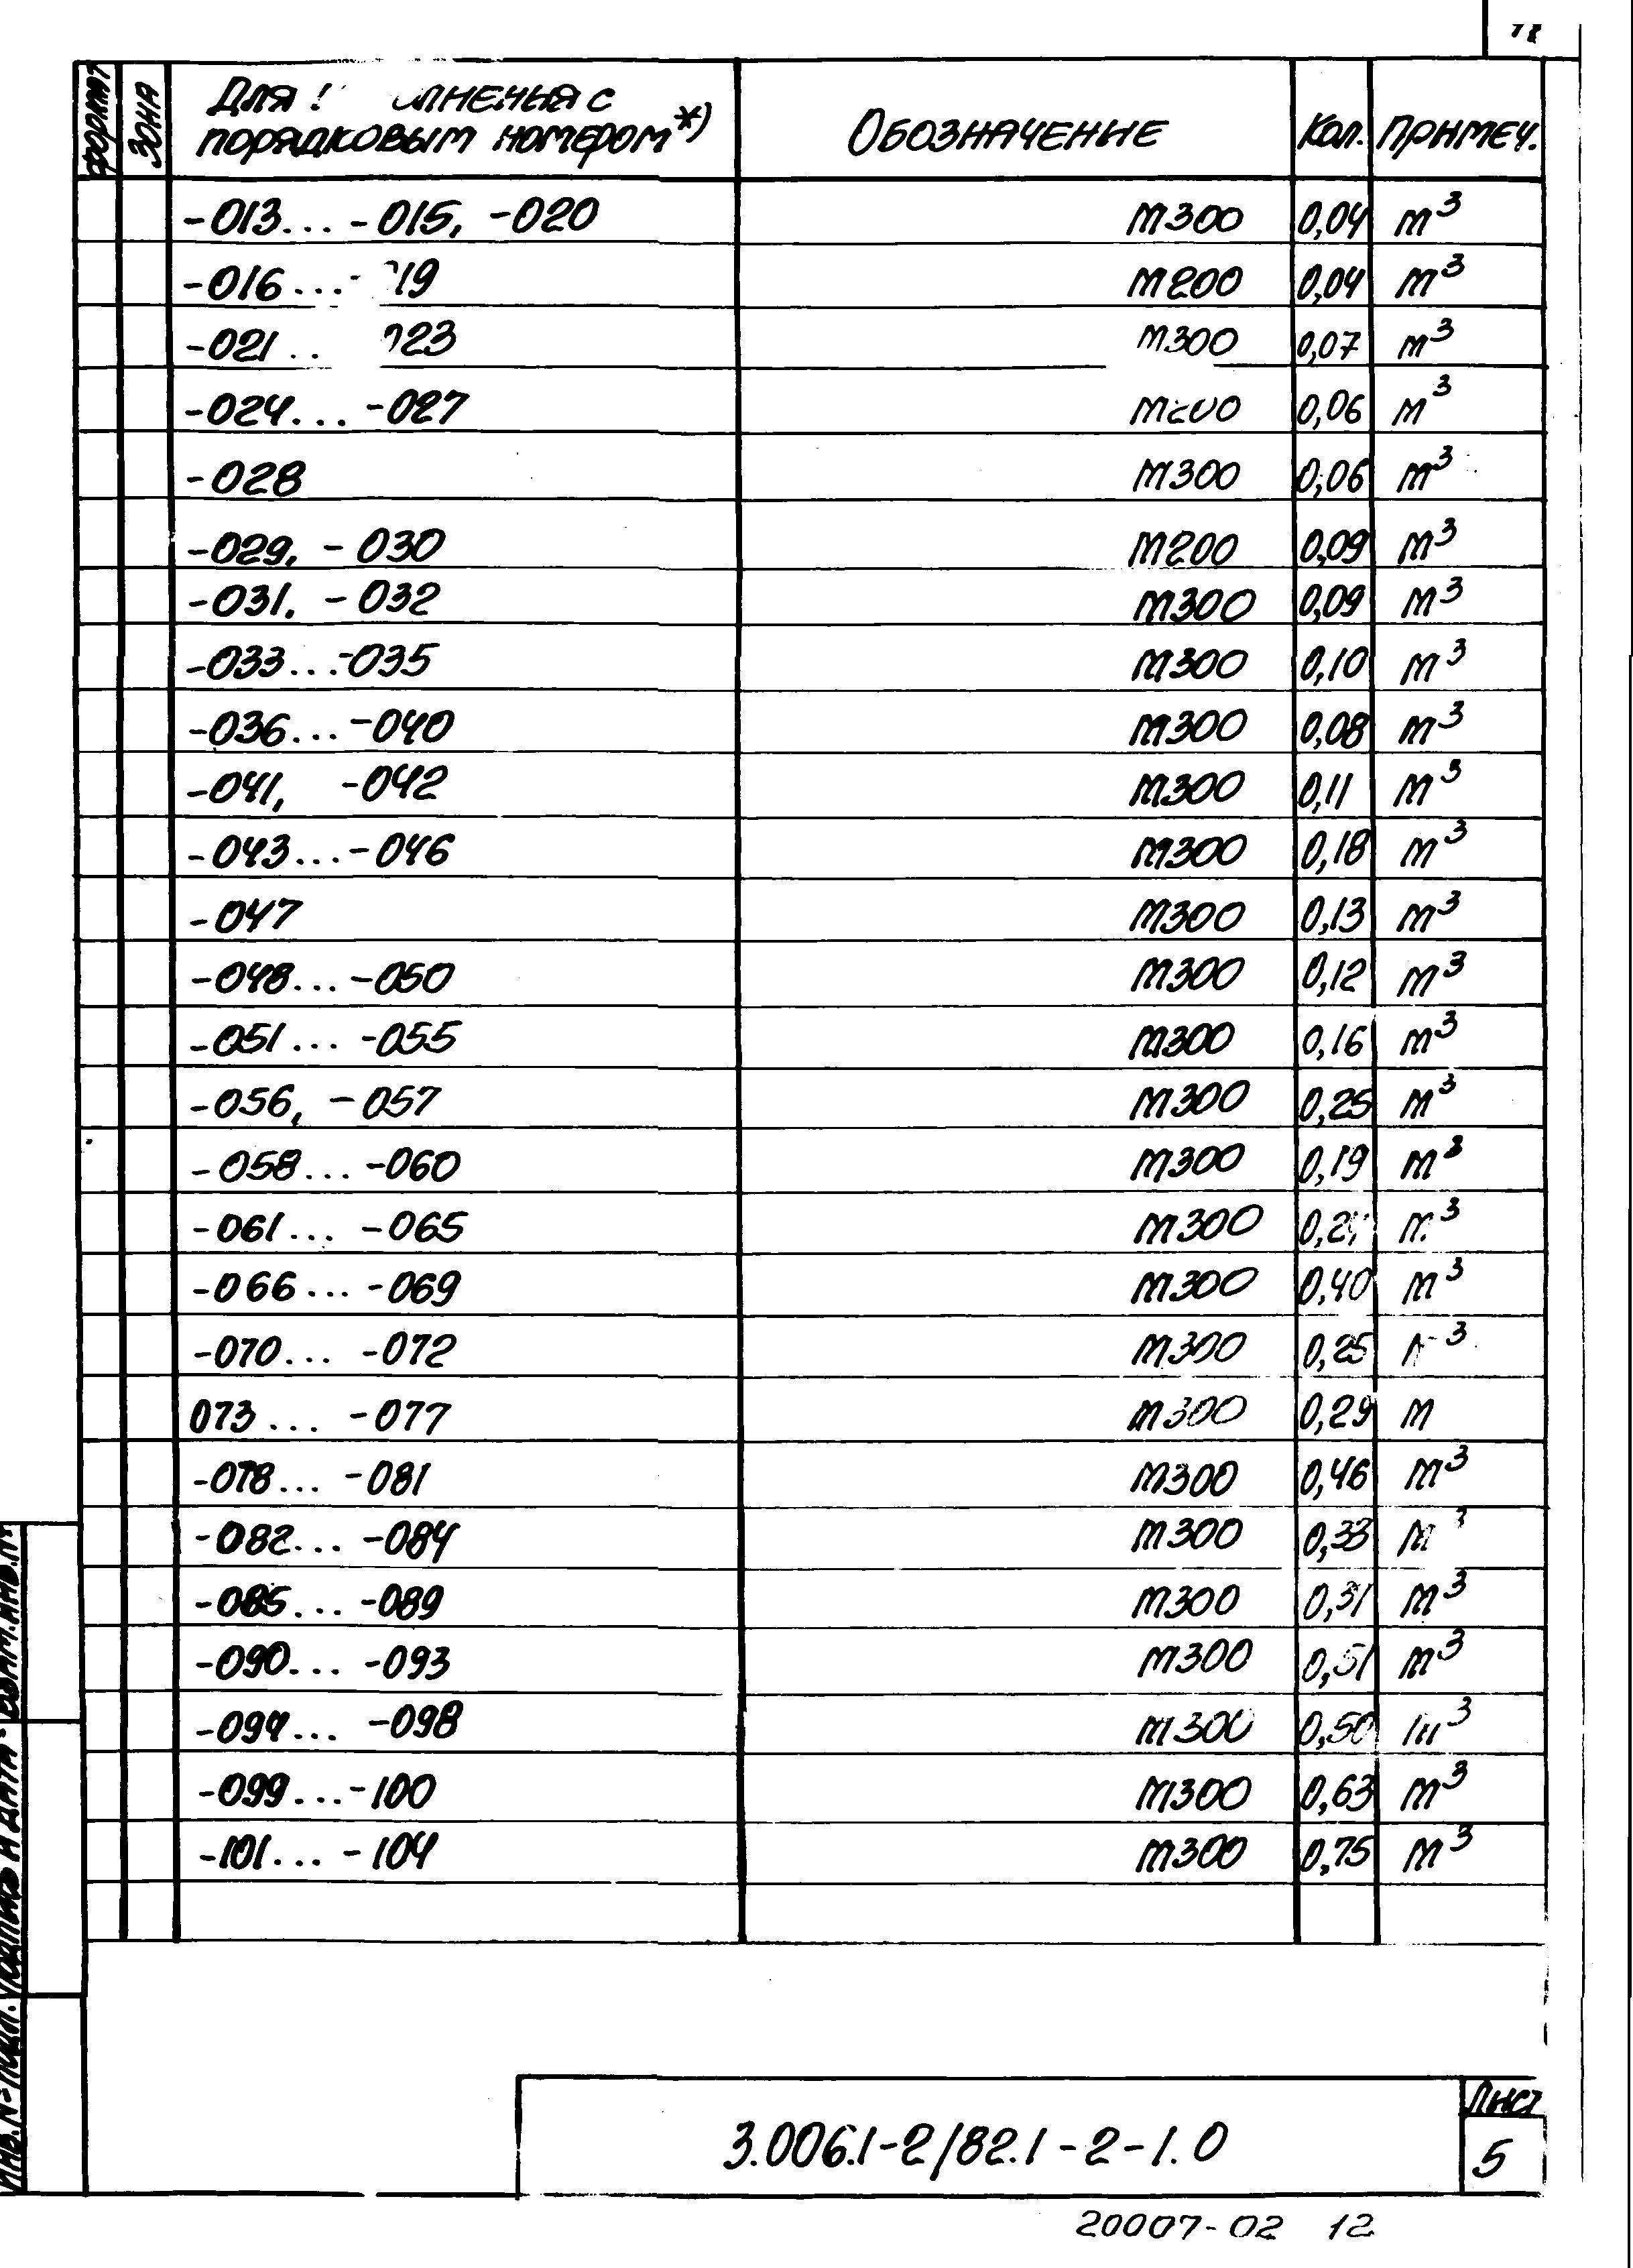 формат Зона Для порядковым номером *) Обозначение Кол. Примеч.
-013... -015, -020 М300 0,04 м³
-016...- 19 М200 0,04 м³
-021 .. 023 М300 0,07 м³
-024... -027 М200 0,06 м³
-028 М300 0,06 м³
-029, -030 М200 0,09 м³
-031, -032 М300 0,09 м³
-033...-035 М300 0,10 м³
-036...-040 М300 0,08 м³
-041, -042 М300 0,11 м³
-043...-046 М300 0,18 м³
-047 М300 0,13 м³
-048...-050 М300 0,12 м³
-051... -055 М300 0,16 м³
-056, -057 М300 0,25 м³
-058... -060 М300 0,19 м³
-061... -065 М300 м³
-066...-069 М300 0,40 м³
-070... -072 М300 0,25 м³
073... -077 М300 0,29 м
-078... -081 М300 0,46 м³
-082... -084 М300 0,33 м³
-085... -089 М300 0,31 м³
-090... -093 М300 0,51 м³
-094... -098 М300 0,50 м³
-099...-100 М300 0,63 м³
-101...-104 М300 0,75 м³
Инв.№ подл. Подпись и дата Взам.инв.№
3.006.1-2/82.1-2-1.0
Лист
5
20007-02 12